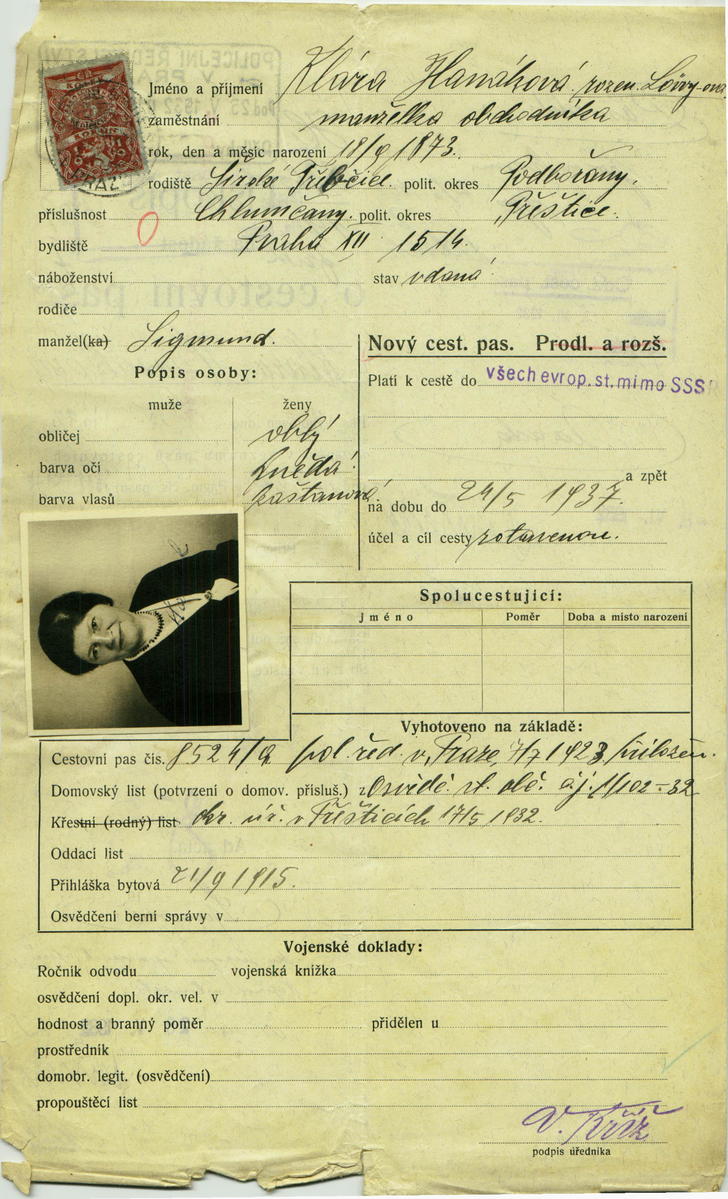 Jméno a příjmení Klára Hanáková rozen. Löwy-ová
zaměstnání manželka obchodníka
rok, den a měsíc narození 18/9 1873.
rodiště Široké Třebčice polit. okres Podbořany.
příslušnost Chlumčany. polit. okres Přeštice.
bydliště Praha XII 1514.
náboženství stav vdaná
rodiče
manžel(ka) Sigmund.
Nový cest. pas. Prodl. a rozš.
Popis osoby:
Platí k cestě do všech evrop. st. mimo SSSR
muže ženy
obličej oblý
barva očí hnědá
a zpět
barva vlasů kaštanová
na dobu do 24/5 1937.
účel a cíl cesty zotavenou.
Spolucestující:
Jméno Poměr Doba a místo narození
Vyhotoveno na základě:
Cestovní pas čís. 8524/a pol. řed. v Praze, 7/7 1923 přiložen.
Domovský list (potvrzení o domov. přísluš.) z Osvědč. st. obč. čj. 11102-32
Křestní (rodný) list okr. úř. v Přešticích 17/5 1932.
Oddací list
Přihláška bytová 21/9 1915.
Osvědčení berní správy v
Vojenské doklady:
Ročník odvodu vojenská knížka
osvědčení dopl. okr. vel. v
hodnost a branný poměr přidělen u
prostředník
domobr. legit. (osvědčení)
propouštěcí list
V. Kříž
podpis úředníka